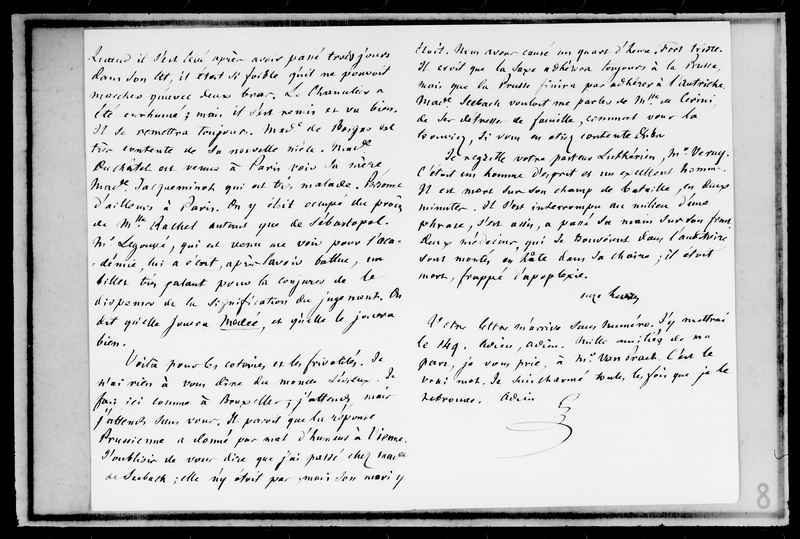 Quand il s'est levé après avoir passé trois jours
dans son lit, il était si foible qu'il ne pouvoit
marcher qu'avec deux bras. Le Chancelier a
été enrhumé ; mais il s'est remis et va bien.
Il se remettra toujours. Mad^e de Boigne est
très contente de sa nouvelle nièce. Mad^e
Duchâtel est venue à Paris voir sa mère
Mad^e Jacqueminot qui est très malade. Personne
d'ailleurs à Paris. On y étoit occupé du procès
de M^lle Rachel autant que de Sébastopol.
M^r Legouvé, qui est venu me voir pour l'aca-
-démie, lui a écrit, après l'avoir battue, un
billet très galant pour la conjurer de le
dispenser de la signification du jugement. On
dit qu'elle jouera Médée, et qu'elle le jouera
bien.
Voilà pour les coteries et les frivolités. Je
n'ai rien à vous dire du monde sérieux. Je
fais ici comme à Bruxelles ; j'attends, mais
j'attends sans vous. Il paroit que la réponse
Prussienne a donné pas mal d'humeur à Vienne.
J'oubliois de vous dire que j'ai passé chez Mad^e
de Seebach ; elle n'y étoit pas, mais son mari y
étoit. Nous avons causé un quart d'heure. Fort triste.
Il croit que la Saxe adhérera toujours à la Prusse,
mais que la Prusse finira par adhérer à l'autriche.
Mad^e Seebach vouloit me parler de M^lle de Cerini,
de ses détresses de famille, comment vous la
trouviez, si vous en étiez contente &&a
Je regrette votre pasteur Luthérien, M^r Verny.
C'étoit un homme d'esprit et un excellent homme.
Il est mort sur son champ de bataille, en deux
minutes. Il s'est interrompu au milieu d'une
phrase, s'est assis, a passé sa main sur son front.
deux médecins, qui se trouvoient dans l'auditoire
sont montés en hâte dans sa chaire ; il étoit
mort, frappé d'apoplexie.
onze heures
Votre lettre m'arrive sans numéro. J'y mettrai
le 149. Adieu, adieu. Mille amitiés de ma
part, je vous prie, à M^r Van Praet. C'est le
vrai mot. Je suis charmé toutes les fois que je le
retrouve. Adieu
G
8